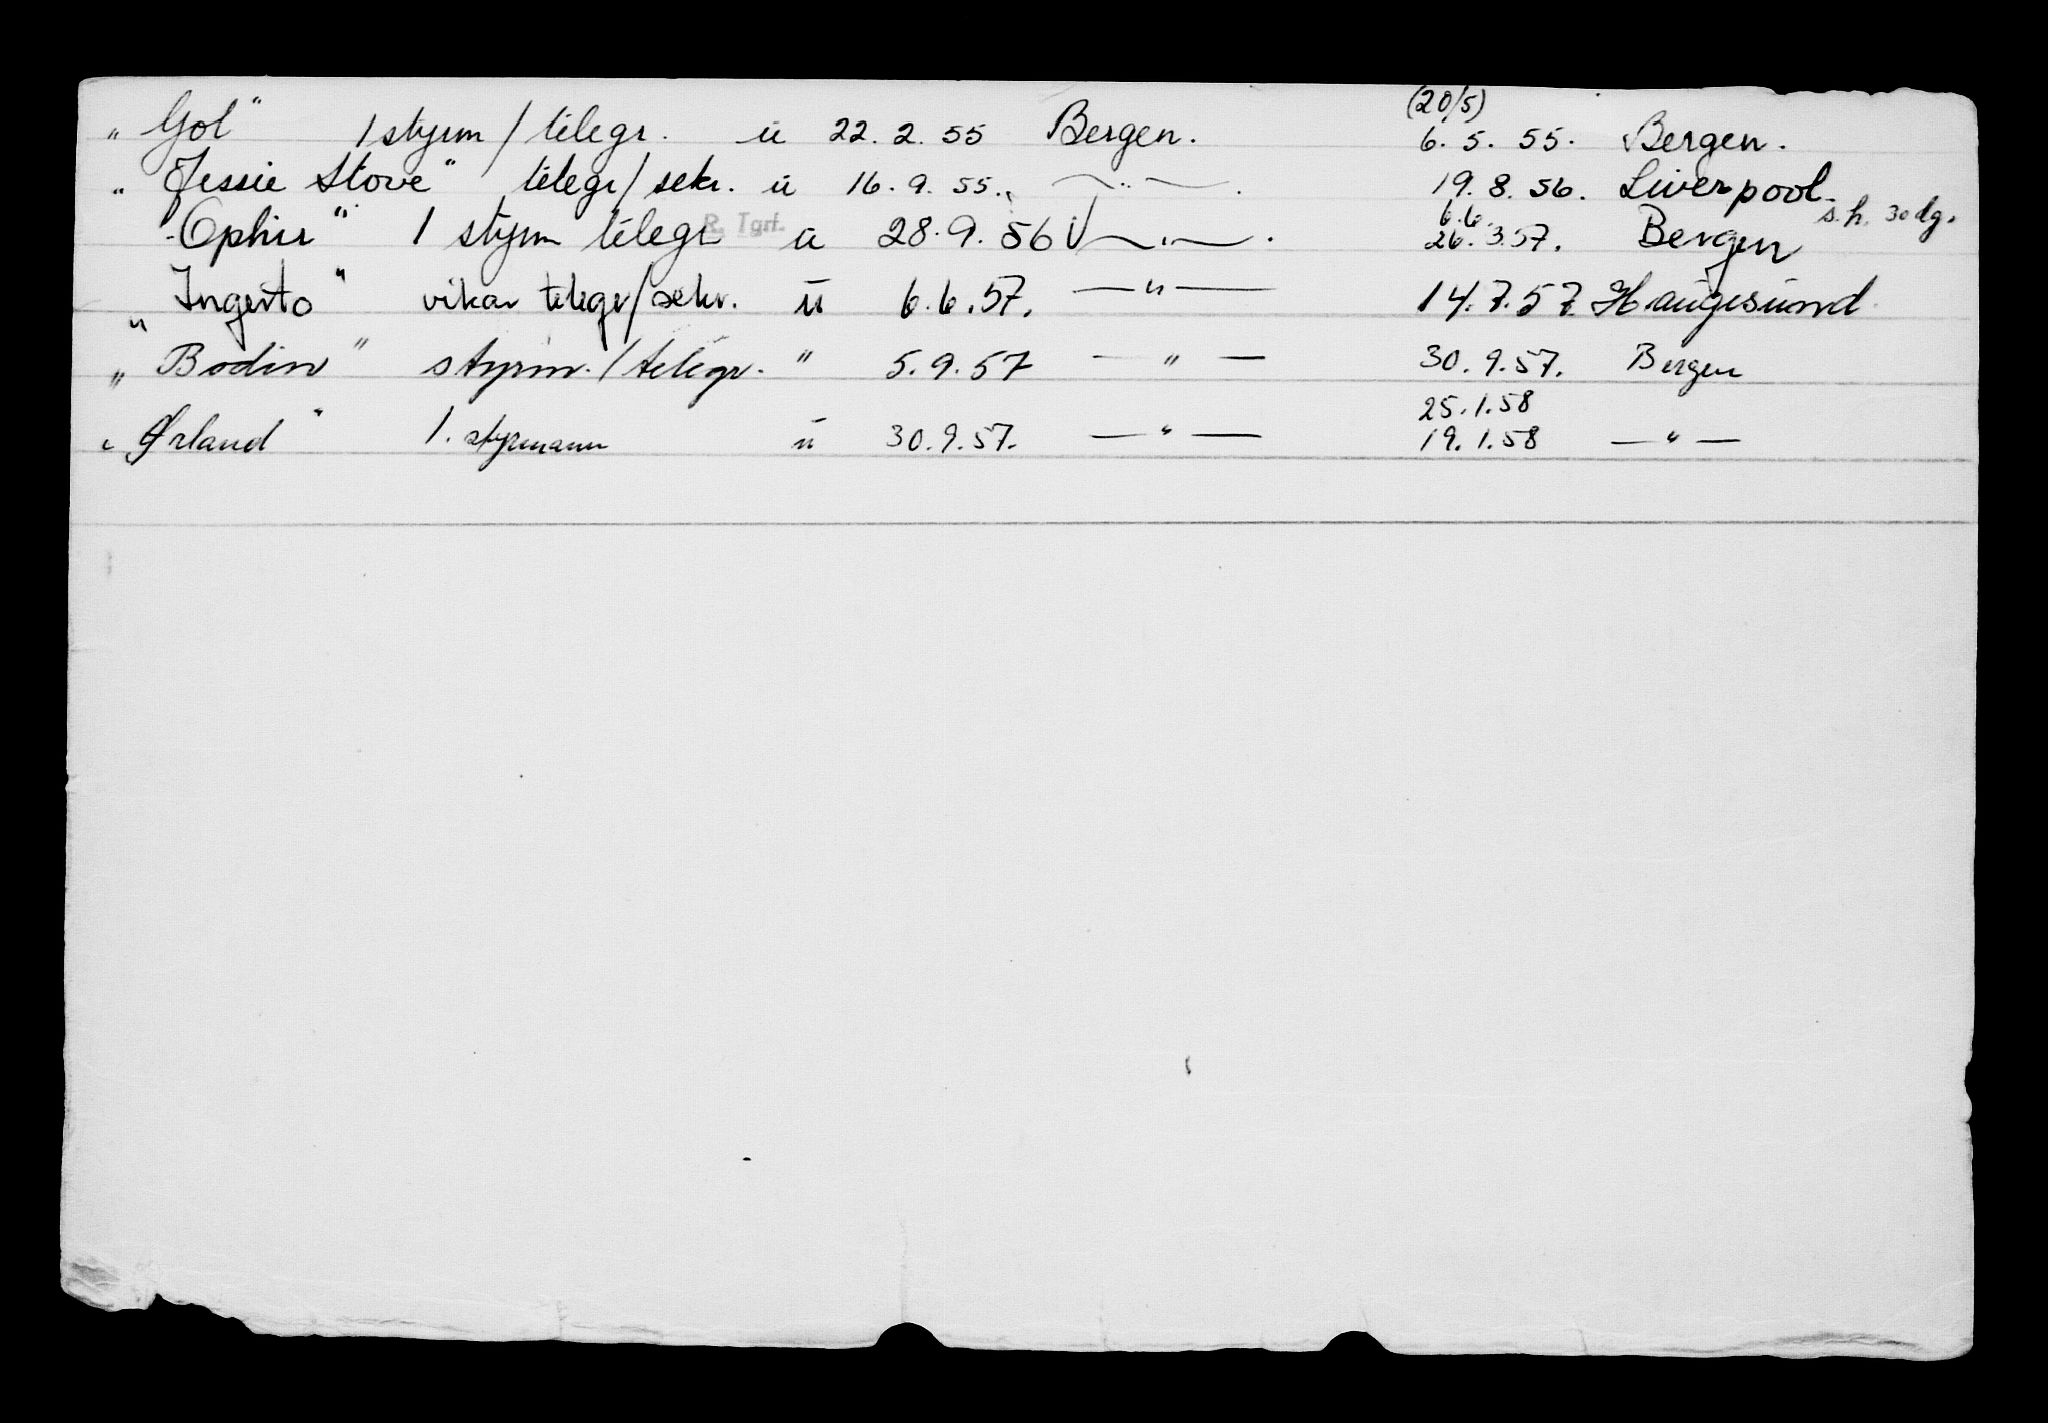 (20/5)
„ Gol" 1 styrm / telegr. u 22. 2. 55 Bergen. 6. 5. 55. Bergen.
„ Jessie Stove" telegr/ sekr. u 16. 9. 55. — " — . 19. 8. 56. Liverpool.
6.6. s. h. 30 dg.
"Ophir" 1 styrm telegr R. Tgrf. u 28. 9. 56 — " — . 26. 3.57. Bergen
„ Ingerto" vikar telegr/sekr. u 6.6.57. — " — 14.7.57 Haugesund
„ Bodin" styrm. / telegr. " 5.9.57 — " — 30.9.57. Bergen
25.1.58
„ Ørland" 1. styrmann u 30.9.57. — " — 19.1.58 — " —